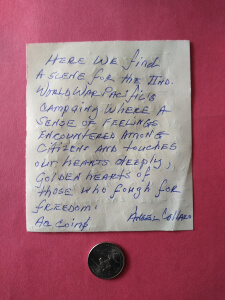 HERE WE find
A SCENE FOR THE IIND.
WORLD WAR PACIFIC'S
CAMPAIGN WHERE A
SENSE OF FEELINGS
ENCOUNTERED AMONG
CITIZENS AND TOUCHES
OUR HEARTS DEEPLY,
GOLDEN HEARTS OF
THOSE WHO FOUGH FOR
FREEDOM.
ANGEL